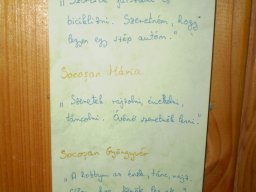 biciklizni. Szeretném, hogy
legyen egy szép autóm."
Socoșan Mária
„Szeretek rajzolni, énekelni,
táncolni. Óvónő szeretnék lenni."
Socoșan Gyöngyvér
„A hobbym az ének, tánc,